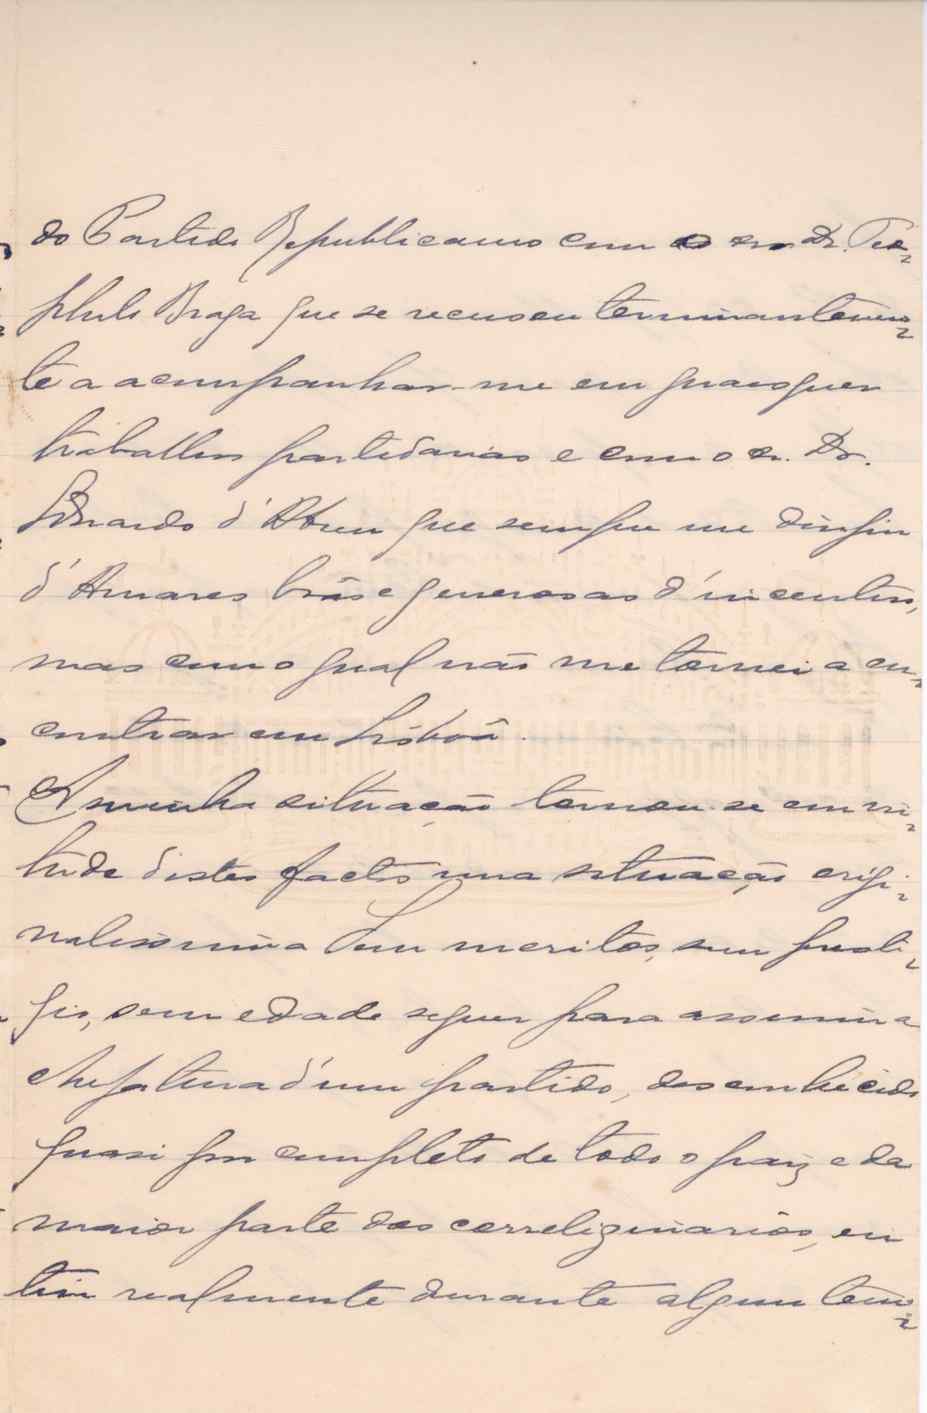 do Partido Republicano com o sr. Dr. Teo-
philo Braga que se recusou terminantemen-
te a acompanhar-me em quaesquer
trabalhos partidarios e com o sr. Dr.
Eduardo d'Abreu que sempre me dirigiu
d'Amares bôas e generosas d'incentivo,
mas com o qual não me tornei a en-
contrar em Lisbôa.
A minha situação tornou-se em vir-
tude d'estes factos uma situação origi-
nalissima. Sem meritos, sem presti-
gio, sem edade sequer para assumir a
chefatura d'um partido, desconhecido
quasi por completo de todo o paiz e da
maior parte dos correligionarios, eu
fui realmente durante algum tem-